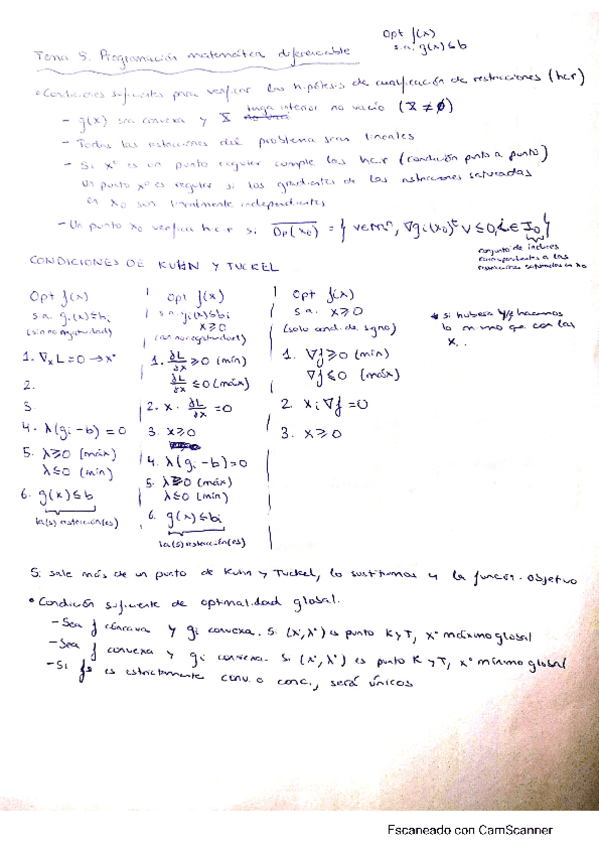 Opt f(x)
s.a. g(x)≤b
Tema 5. Programación matemática diferenciable
• Condiciones suficientes para verificar las hipótesis de cualificación de restricciones (hcr)
- g(x) sea convexa y X tenga interior no vacío (X̊ ≠ ∅)
- Todas las restricciones del problema sean lineales
- Si x⁰ es un punto regular cumple las hcr (condición punto a punto)
Un punto x⁰ es regular si los gradientes de las restricciones saturadas
en x₀ son linealmente independientes
- Un punto x₀ verifica hcr si D̅p̅(̅x̅₀̅)̅ = { v∈ℝⁿ, ∇gi(x₀)ᵗ v ≤ 0, i∈I₀ }
conjunto de índices
correspondientes a las
restricciones saturadas en x₀
CONDICIONES DE KUHN Y TUCKEL
Opt f(x)
s.a. gi(x)≤bi
(sin no negatividad)
1. ∇ₓL = 0 → x*
2.
3.
4. λ(gi - b) = 0
5. λ≥0 (máx)
λ≤0 (mín)
6. g(x)≤b
la(s) restricción(es)
Opt f(x)
s.a. gi(x)≤bi
x≥0
(con no negatividad)
1. ∂L/∂x ≥0 (mín)
∂L/∂x ≤0 (máx)
2. x · ∂L/∂x = 0
3. x≥0
4. λ(gi - b) = 0
5. λ≥0 (máx)
λ≤0 (mín)
6. g(x)≤bi
la(s) restricción(es)
Opt f(x)
s.a. x≥0
(solo cond. de signo)
1. ∇f≥0 (mín)
∇f≤0 (máx)
2. xi ∇f = 0
3. x≥0
* si hubiera y, hacemos
lo mismo que con las
x.
Si sale más de un punto de Kuhn y Tuckel, lo sustituimos y la función objetivo
• Condición suficiente de optimalidad global.
- Sea f cóncava y gi convexa. Si (x*, λ*) es punto K y T, x* máximo global
- Sea f convexa y gi convexa. Si (x*, λ*) es punto K y T, x* mínimo global
- Si f es estrictamente conv. o conc., será únicos
Escaneado con CamScanner